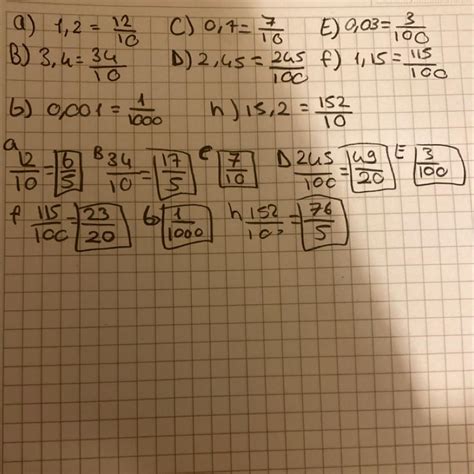 a) 1,2 = 12/10 C) 0,7 = 7/10 E) 0,03 = 3/100
B) 3,4 = 34/10 D) 2,45 = 245/100 f) 1,15 = 115/100
6) 0,001 = 1/1000 h) 15,2 = 152/10
a 12/10 = 6/5 B 34/10 = 17/5 C 7/10 D 245/100 = 49/20 E 3/100
f 115/100 = 23/20 6) 1/1000 h 152/10 = 76/5